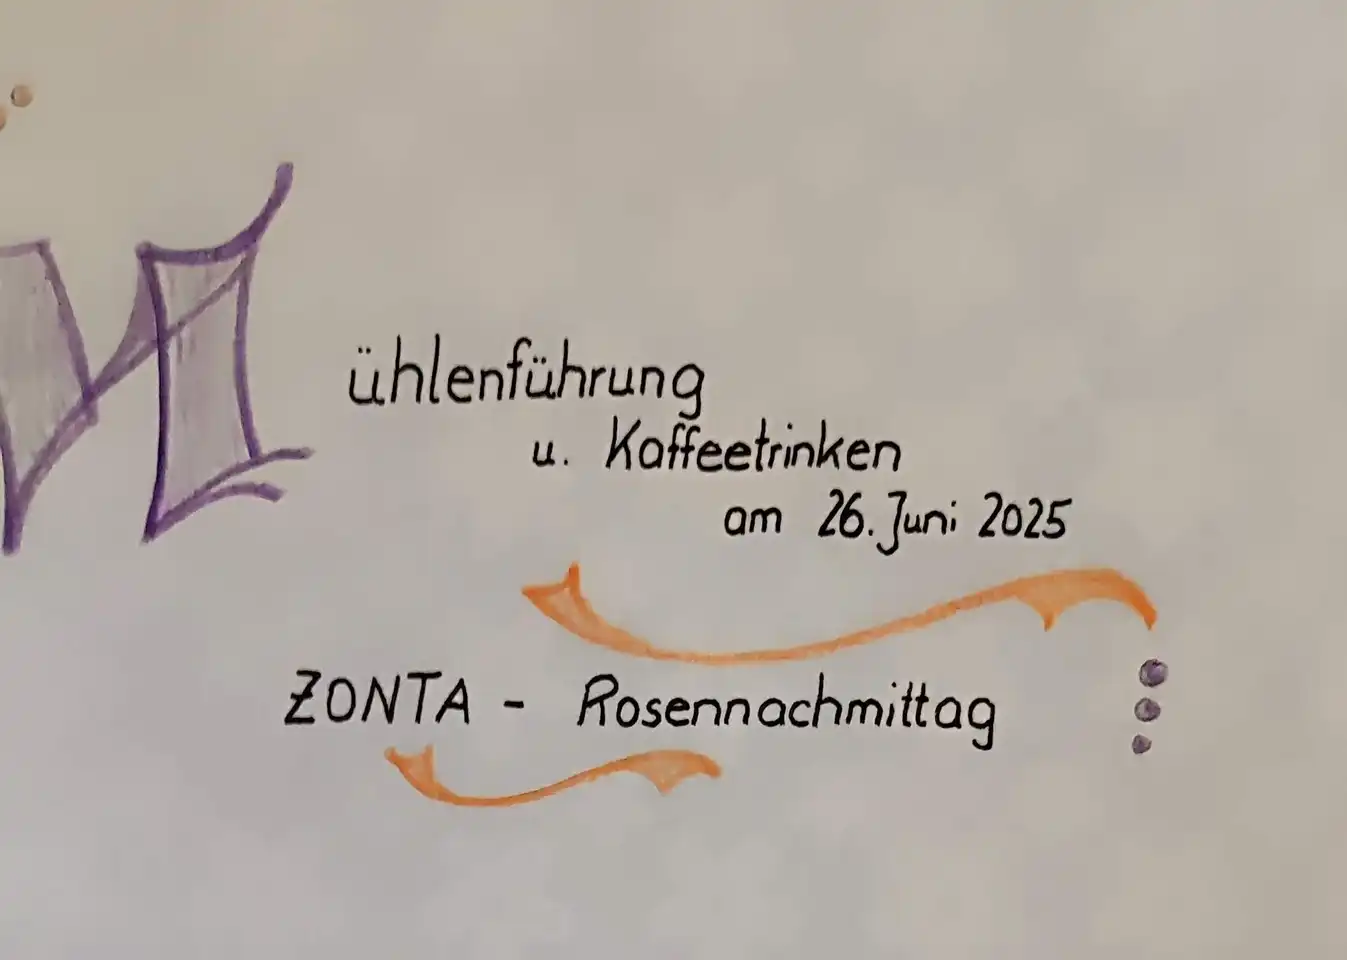 Mühlenführung
u. Kaffeetrinken
am 26. Juni 2025
ZONTA - Rosennachmittag